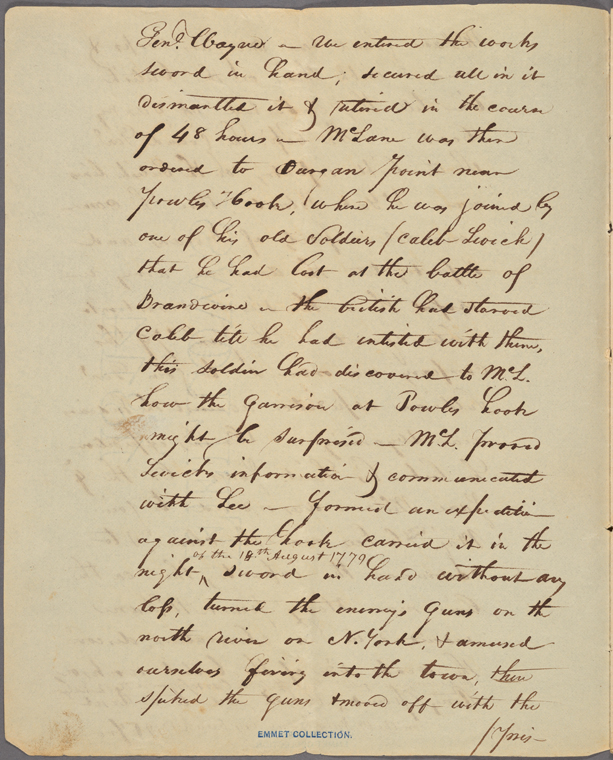 Genl. Wayne — We entered the works
sword in hand; secured all in it
dismantled it & retired in the course
of 48 hours — McLane was then
ordered to Burgan Point near
Powles Hook, where he was joined by
one of his old Soldiers (Caleb Levick)
that he had lost at the battle of
Brandwine — the british had starved
Caleb till he had intisted with them,
this soldier had discovered to McL.
how the garrison at Powles hook
might be surprised — McL. proved
Levicks information & communicated
with Lee — formed an expedition
against the hook carried it in the
of the 18th August 1779
night ^ sword in hand without any
loss, turned the enemy's guns on the
north river on N. York, & amused
ourselves fiering into the town, then
spiked the guns & moved off with the
pris-
EMMET COLLECTION.